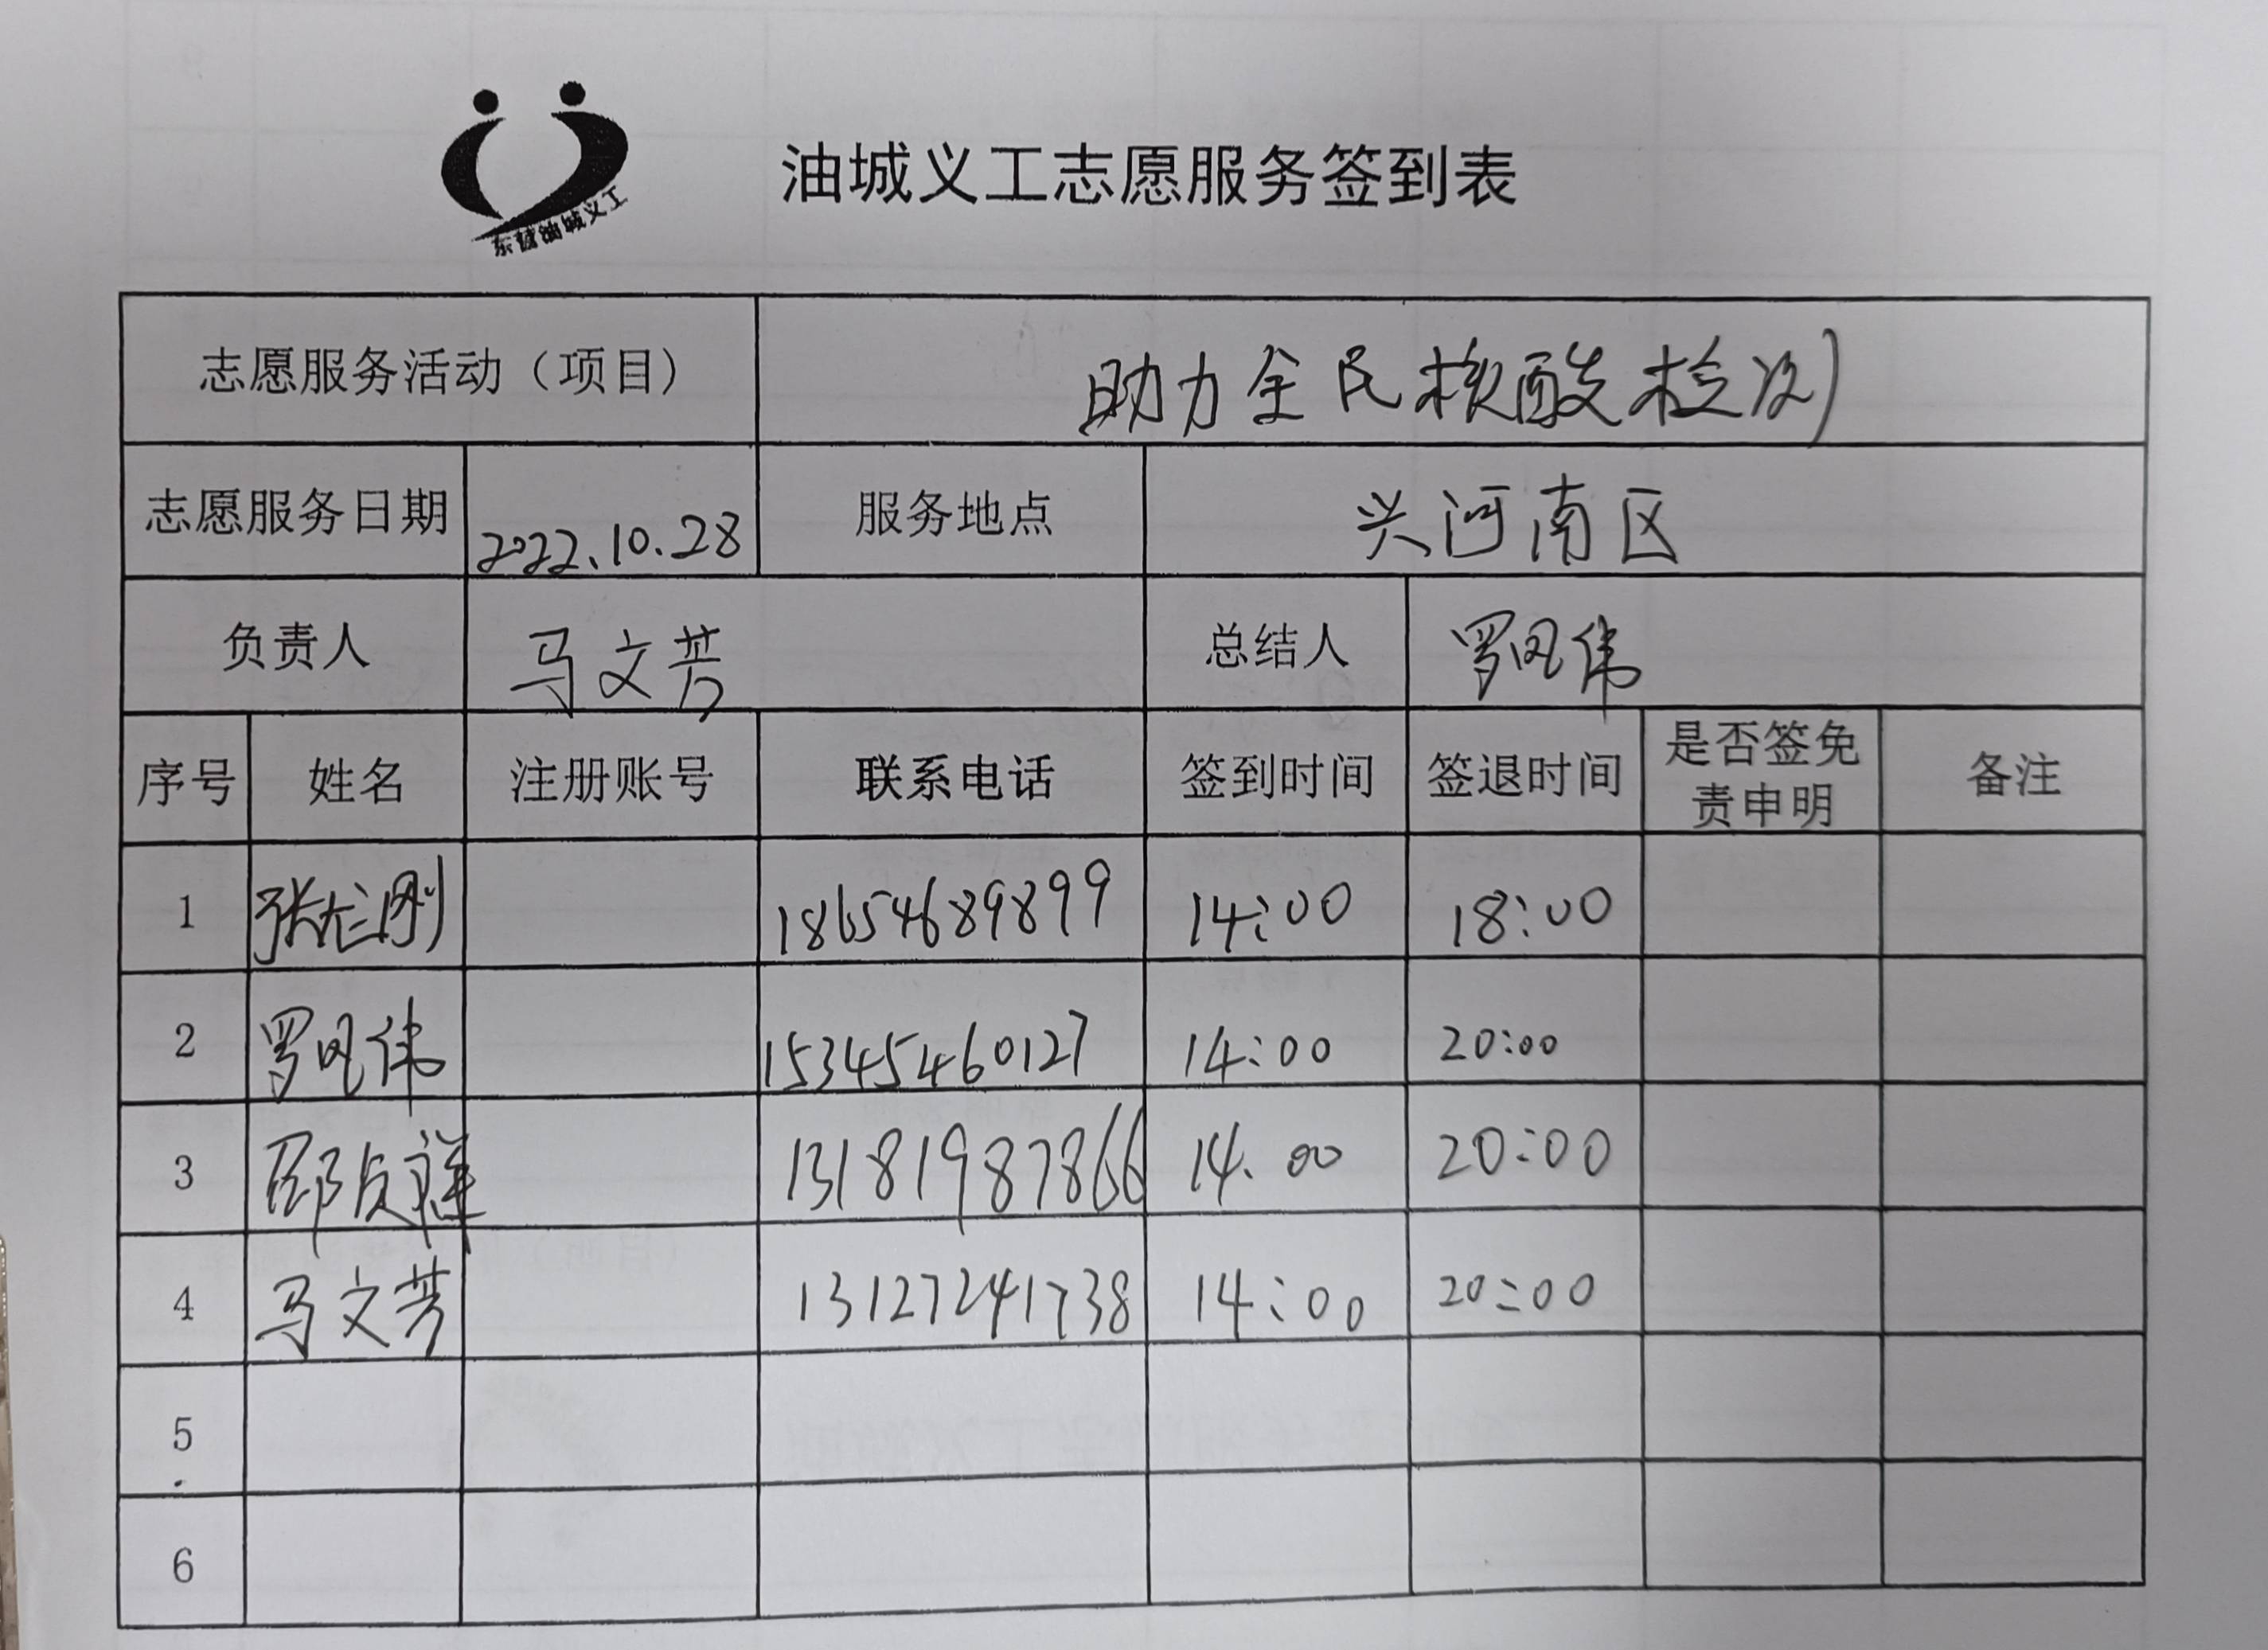 东营油城义工
油城义工志愿服务签到表
志愿服务活动（项目） 助力全民核酸检测
志愿服务日期 2022.10.28 服务地点 兴河南区
负责人 马文芳 总结人 罗凤伟
序号 姓名 注册账号 联系电话 签到时间 签退时间 是否签免责申明 备注
1 张 刚 18654689899 14:00 18:00
2 罗凤伟 15345460127 14:00 20:00
3 邵贞祥 13181987866 14.00 20:00
4 马文芳 13127241738 14:00 20:00
5
6